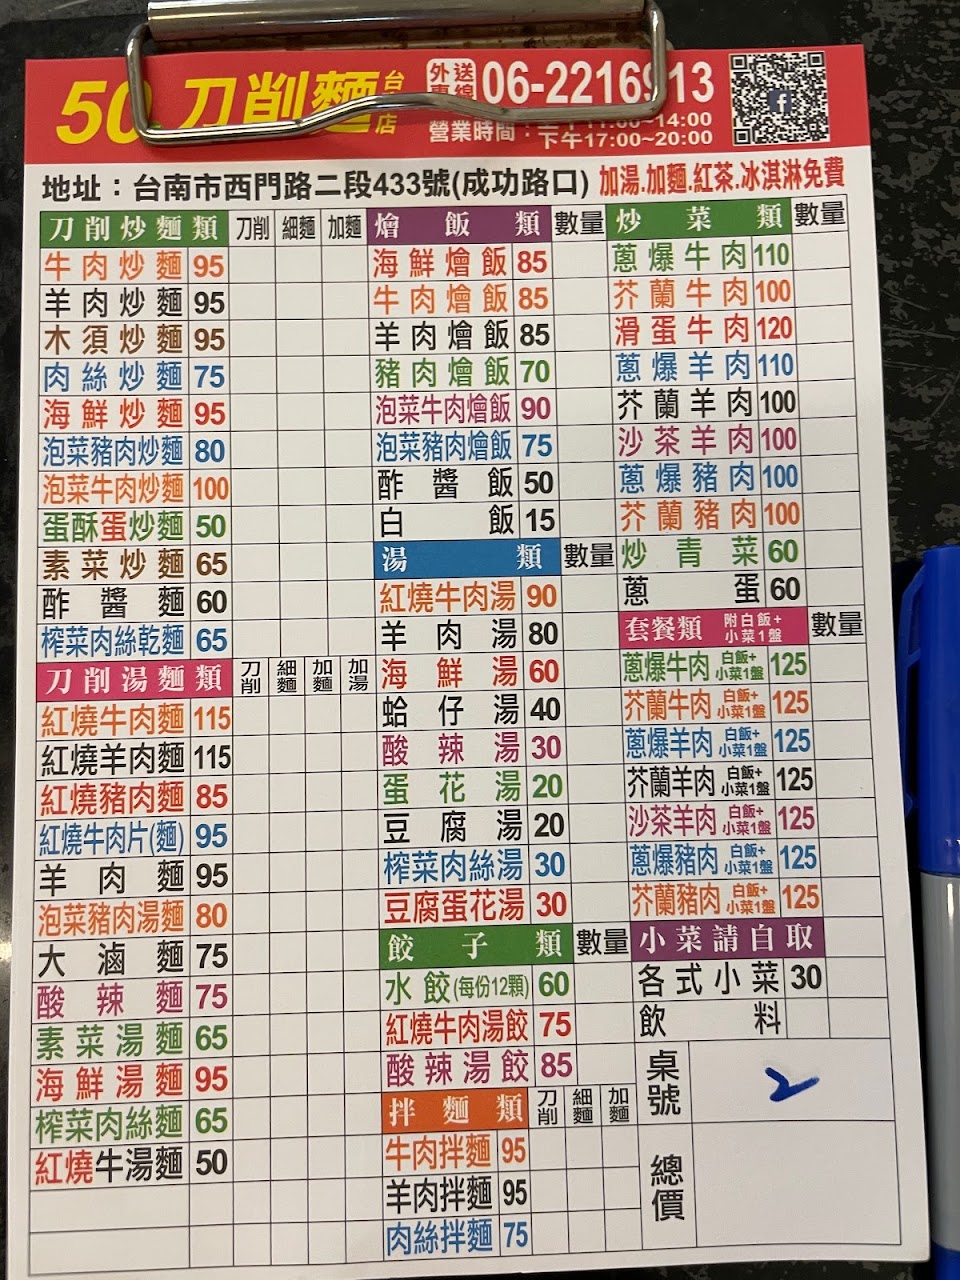 50 刀削麵 台 店
外送專線 06-2216913
營業時間：上午11:00~14:00
下午17:00~20:00
地址：台南市西門路二段433號(成功路口) 加湯.加麵.紅茶.冰淇淋免費
刀削炒麵類 刀削 細麵 加麵
牛肉炒麵 95
羊肉炒麵 95
木須炒麵 95
肉絲炒麵 75
海鮮炒麵 95
泡菜豬肉炒麵 80
泡菜牛肉炒麵 100
蛋酥蛋炒麵 50
素菜炒麵 65
酢醬麵 60
榨菜肉絲乾麵 65
刀削湯麵類 刀削 細麵 加麵 加湯
紅燒牛肉麵 115
紅燒羊肉麵 115
紅燒豬肉麵 85
紅燒牛肉片(麵) 95
羊肉麵 95
泡菜豬肉湯麵 80
大滷麵 75
酸辣麵 75
素菜湯麵 65
海鮮湯麵 95
榨菜肉絲麵 65
紅燒牛湯麵 50
燴飯類 數量
海鮮燴飯 85
牛肉燴飯 85
羊肉燴飯 85
豬肉燴飯 70
泡菜牛肉燴飯 90
泡菜豬肉燴飯 75
酢醬飯 50
白飯 15
湯類 數量
紅燒牛肉湯 90
羊肉湯 80
海鮮湯 60
蛤仔湯 40
酸辣湯 30
蛋花湯 20
豆腐湯 20
榨菜肉絲湯 30
豆腐蛋花湯 30
餃子類 數量
水餃(每份12顆) 60
紅燒牛肉湯餃 75
酸辣湯餃 85
拌麵類 刀削 細麵 加麵
牛肉拌麵 95
羊肉拌麵 95
肉絲拌麵 75
炒菜類 數量
蔥爆牛肉 110
芥蘭牛肉 100
滑蛋牛肉 120
蔥爆羊肉 110
芥蘭羊肉 100
沙茶羊肉 100
蔥爆豬肉 100
芥蘭豬肉 100
炒青菜 60
蔥蛋 60
套餐類 附白飯+小菜1盤 數量
蔥爆牛肉 白飯+小菜1盤 125
芥蘭牛肉 白飯+小菜1盤 125
蔥爆羊肉 白飯+小菜1盤 125
芥蘭羊肉 白飯+小菜1盤 125
沙茶羊肉 白飯+小菜1盤 125
蔥爆豬肉 白飯+小菜1盤 125
芥蘭豬肉 白飯+小菜1盤 125
小菜請自取
各式小菜 30
飲料
桌號 2
總價